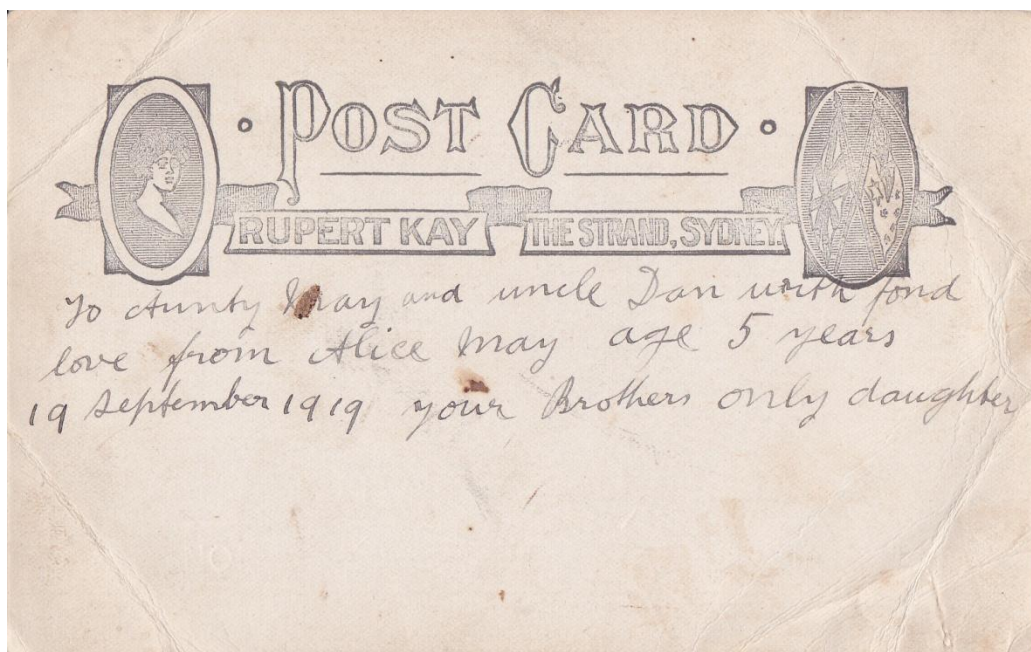 POST CARD
RUPERT KAY THE STRAND, SYDNEY.
To Aunty May and uncle Dan with fond
love from Alice May age 5 years
19 September 1919 your Brothers only daughter